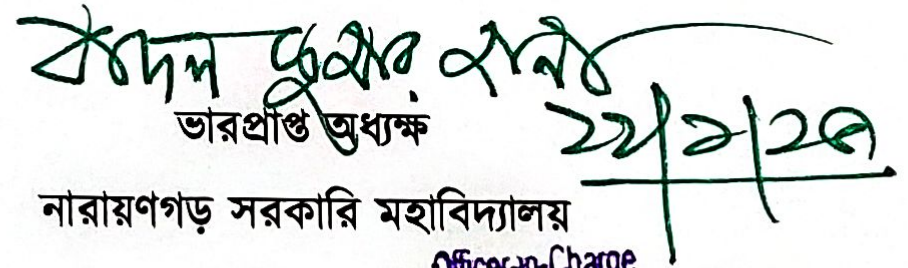 বাদল কুমার রানা
ভারপ্রাপ্ত অধ্যক্ষ
নারায়ণগড় সরকারি মহাবিদ্যালয়
Officer-in-Charge